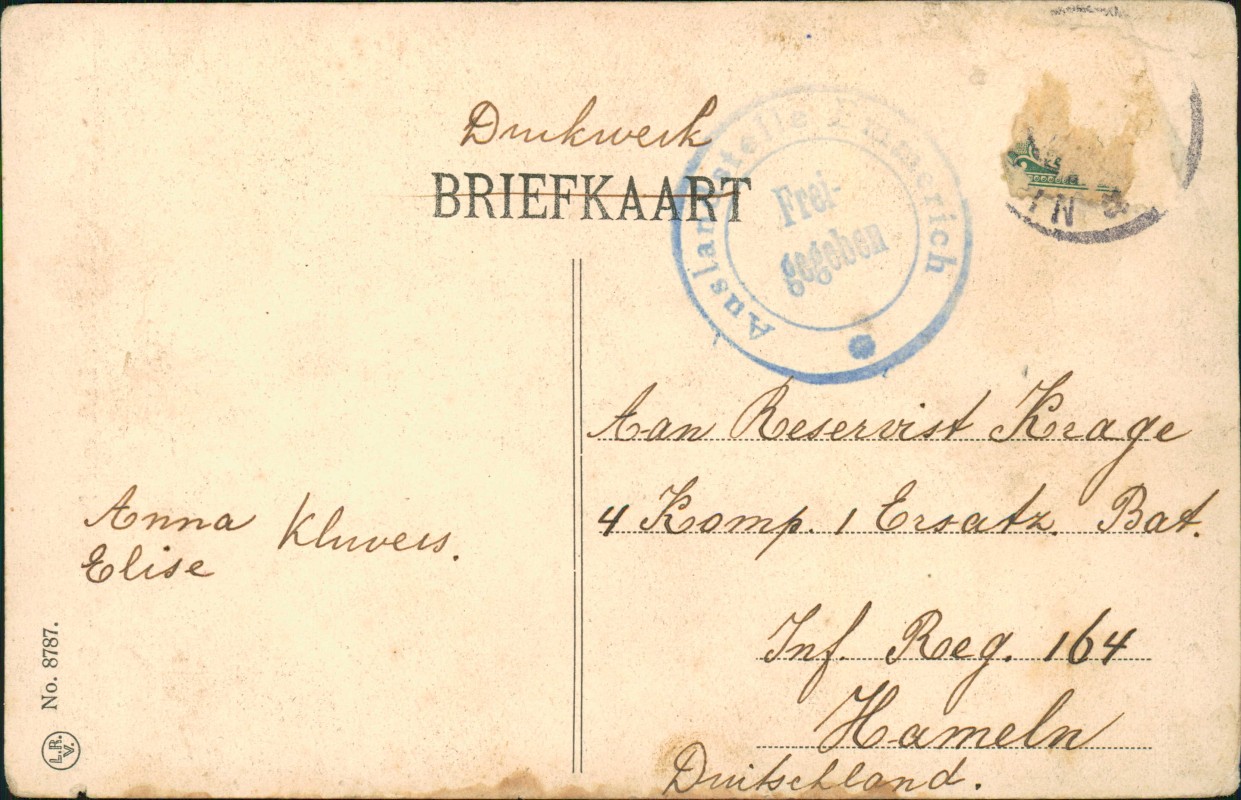 Drukwerk
BRIEFKAART
Auslandsstelle Emmerich
Frei-
gegeben
Aan Reservist Krage
4 Komp. 1 Ersatz. Bat.
Inf. Reg. 164
Hameln
Duitschland.
Anna
Elise
Kluvers.
No. 8787.
L.R.
V.